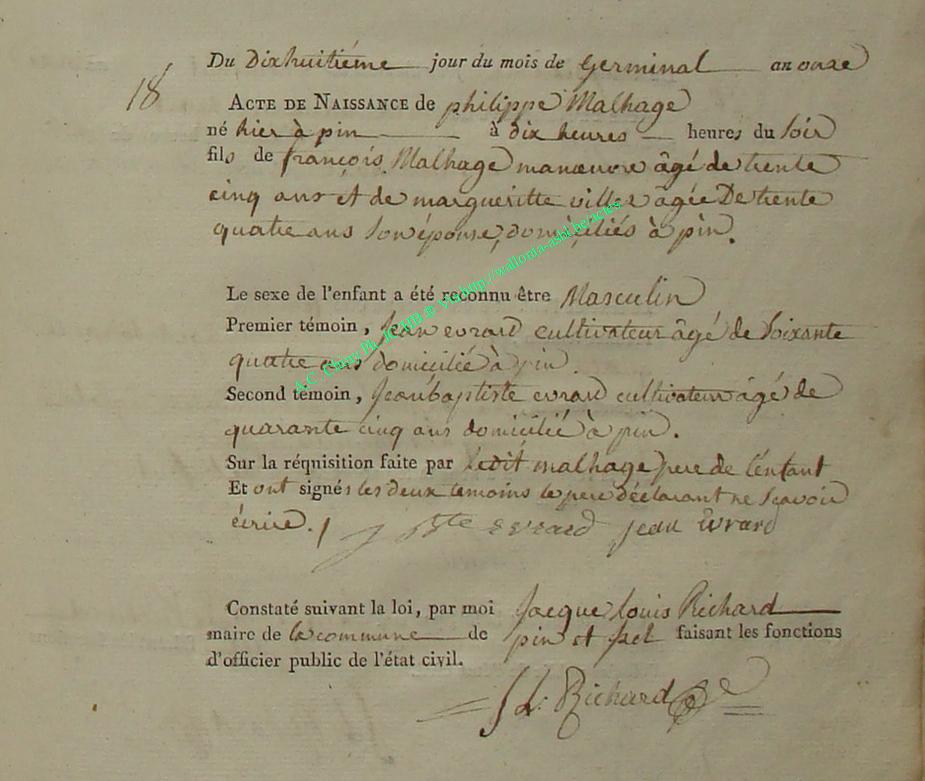 Du Dixhuitiéme jour du mois de Germinal an onze
18
ACTE DE NAISSANCE de philippe Malhage
né hier à pin à dix heures heures du soir
fils de françois Malhage manœuvre âgé de trente
cinq ans et de margueritte villez agée De trente
quatre ans son épouse, domiciliés à pin.
Le sexe de l'enfant a été reconnu être Masculin
Premier témoin, jean evrard cultivateur âgé de soixante
quatre ans domicilié à pin.
Second témoin, Jeanbaptiste evrard cultivateur âgé de
quarante cinq ans domicilié à pin.
Sur la réquisition faite par ledit malhage pere de l'enfant
Et ont signés les deux temoins le pere déclarant ne scavoir
écrire.
j Bte evrard jean Evrard
Constaté suivant la loi, par moi Jacque Louis Richard
maire de la commune de pin et faisant les fonctions
d'officier public de l'état civil.
J L: Richard
http://wallonia-asbl.be/actes